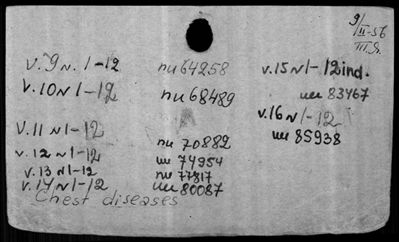 9/II-56
v. 9 N. 1-12 nu 64258 v. 15 N 1-12 ind.
v. 10 N 1-12 nu 68489 nu 83467
v. 16 N 1-12
v. 11 N 1-12 nu 70882 nu 85938
v. 12 N 1-12 nu 74954
v. 13 N 1-12 nu 77817
v. 14 N 1-12 nu 80087
Chest diseases